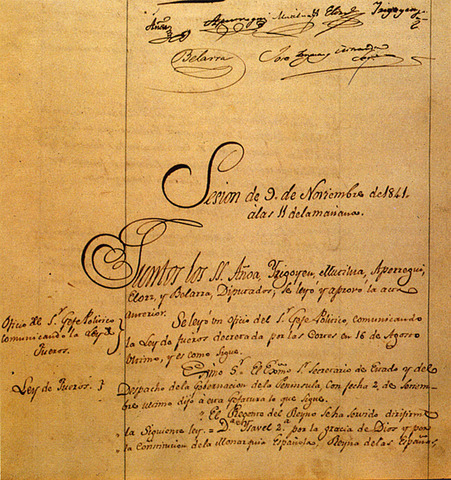 Añoa Aperregui Muzubal Elorz Yrigoyen
Belarra José Yanguas y Miranda
Sesion de 9. de Noviembre de 1841.
à las 11 de la mañana.
Juntos los SS. Añoa, Yrigoyen, Aperregui,
Elorz, y Belarra, Diputados, se leyó y aprovó la acta
anterior.
Oficio del Sr. Gefe Politico,
comunicando la ley de
Fueros.
Se leyó un Oficio del Sr. Gefe Politico, comunicando
la Ley de fueros decretada por las Cortes en 16 de Agosto
ultimo, y es como sigue.
Ley de Fueros.
Exmo Sr. El Exmo Sr. Secretario de Estado y del
Despacho de la Gobernacion de la Peninsula con fecha 2 de Setiem-
bre ultimo dijo á esta gefatura lo que sigue.
" El Regente del Reyno se ha servido dirijirme
" la siguiente ley. = Da. Isavel 2.a por la gracia de Dios y por
" la Constitucion de la Monarquia Española, Reyna de las Españas,